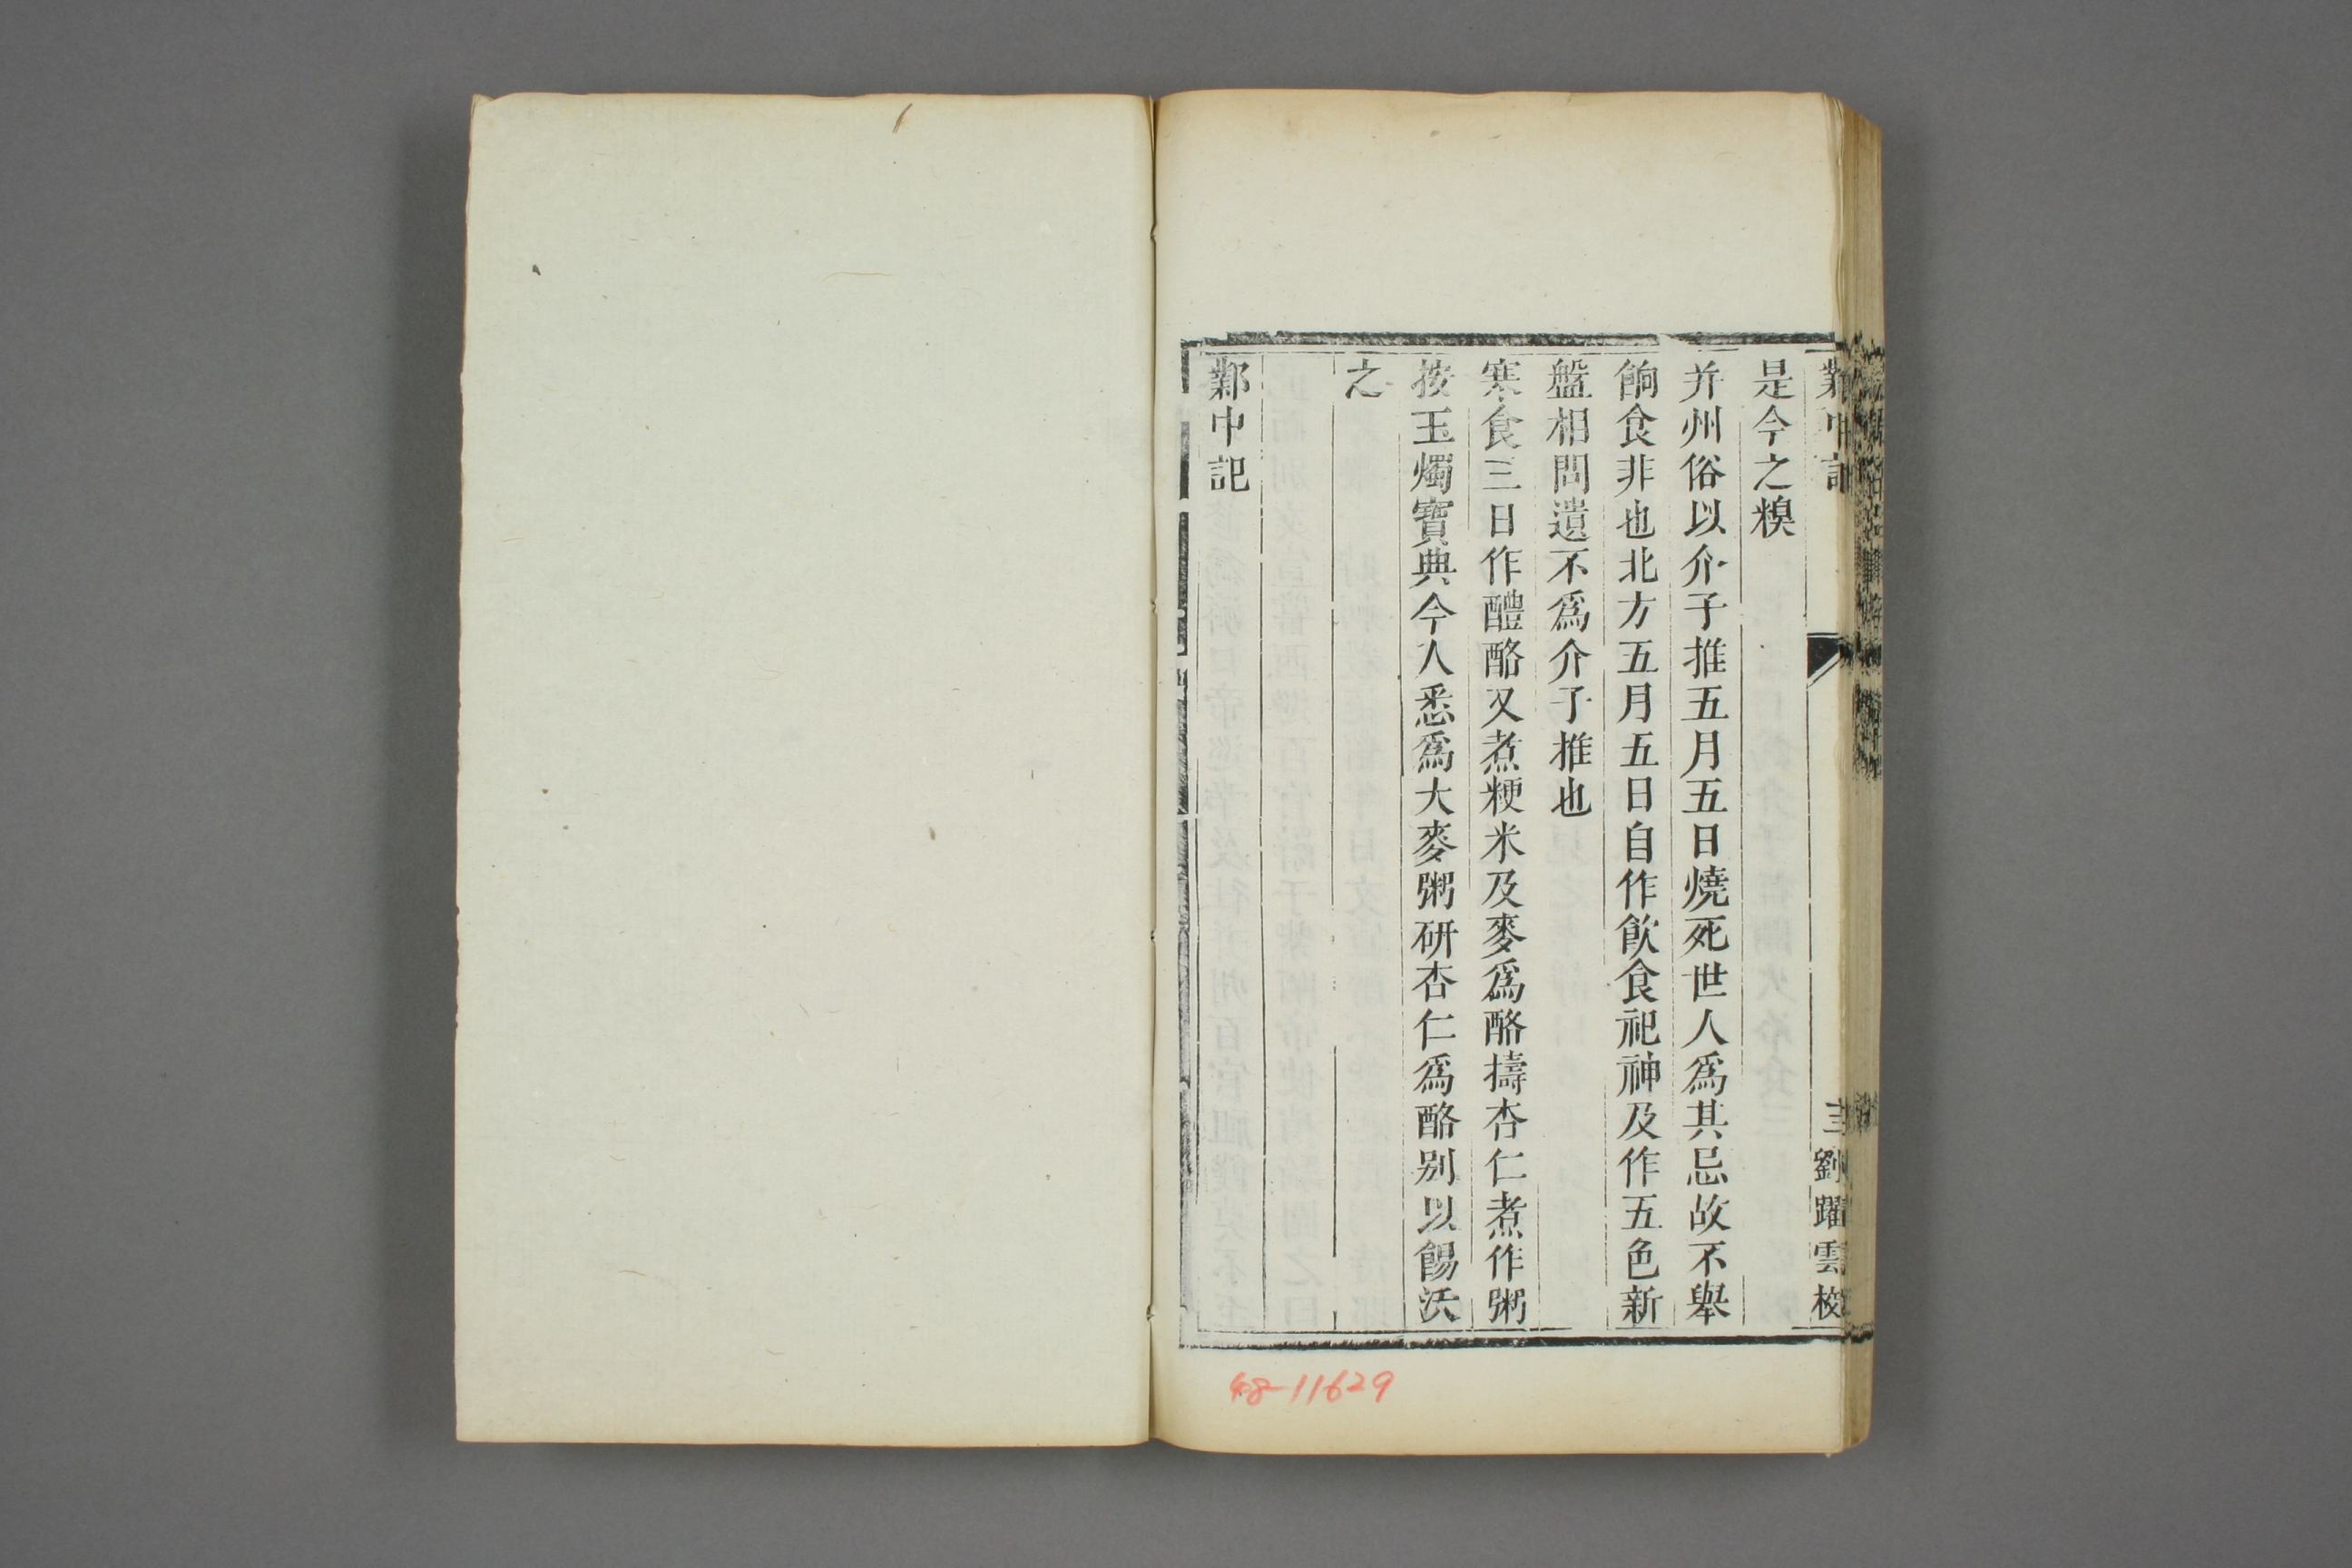 鄴中記
三 劉躍雲校
是今之糗
并州俗以介子推五月五日燒死世人爲其忌故不舉
餉食非也北方五月五日自作飲食祀神及作五色新
盤相問遺不爲介子推也
寒食三日作醴酪又煮粳米及麥爲酪擣杏仁煮作粥
按玉燭寶典今人悉爲大麥粥研杏仁爲酪别以餳沃
之
鄴中記
48-11629